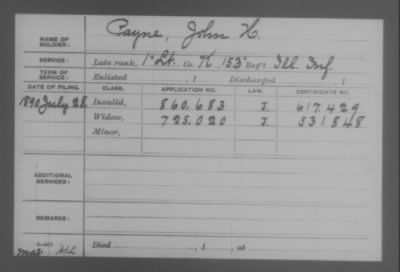 NAME OF SOLDIER: Payne, John H.
SERVICE: Late rank, 1" Lt. Co. K, 153" Reg't Ill. Inf.
TERM OF SERVICE: Enlisted , 1 Discharged , 1
DATE OF FILING. CLASS. APPLICATION NO. LAW. CERTIFICATE NO.
1890 July 28, Invalid, 860.683 J. 617.429
Widow, 725.020 J. 531848
Minor,
ADDITIONAL SERVICES:
REMARKS:
Died , 1 , at